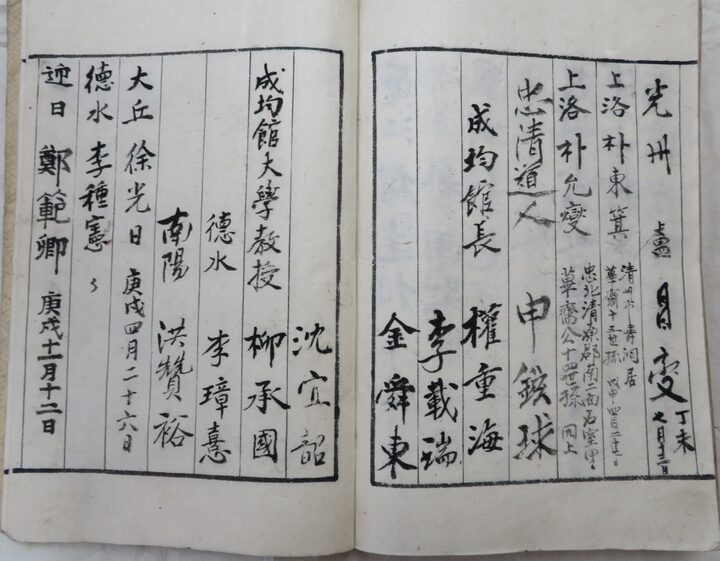 光州 盧 昌燮 丁未七月十二日
上洛 朴東箕 清州市壽洞居 葦齋十五世孫 四月二十六日
上洛 朴允燮 忠北清原郡南二面石室里 葦齋公十四世孫 同上
忠清道人 申鎖球
成均館長 權重海
李載瑞
金舜東
沈宜韶
成均館大學教授 柳承國
德水 李璋憙
南陽 洪贊裕
大丘 徐光日 庚戌四月二十六日
德水 李種憲
迎日 鄭範卿 庚戌十一月十二日